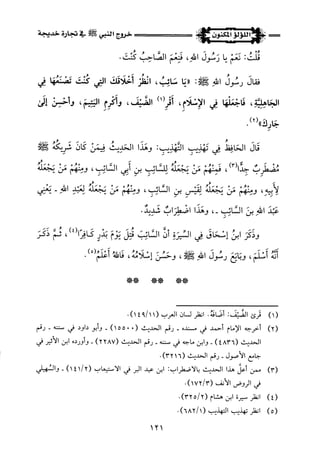 اللؤلؤ المكنون
خروج النبي ﷺ في تجارة خديجة
قُلْتُ: نَعَمْ يا رَسُولَ اللهِ، فَنِعْمَ الصَّاحِبُ كُنْتَ.
فقالَ رسُولُ اللهِ ﷺ: «يَا سَائِبُ، انْظُرْ أَخْلَاقَكَ التِي كُنْتَ تَصْنَعُهَا فِي
الجَاهِلِيَّةِ، فَاجْعَلْهَا فِي الإِسْلَامِ، أَقْرِ(١) الضَّيْفَ، وأَكْرِمِ اليَتِيمَ، وأَحْسِنْ إلَى
جَارِكَ»(٢).
قَالَ الحَافِظُ فِي تَهْذِيبِ التَّهْذِيبِ: وهَذَا الحَدِيثُ فِيمَنْ كَانَ شَرِيكَهُ ﷺ
مُضْطَرِبٌ جِدًّا(٣)، فَمِنْهُمْ مَنْ يَجْعَلُهُ لِلسَّائِبِ بنِ أَبِي السَّائِبِ، ومِنْهُمْ مَنْ يَجْعَلُهُ
لِأَبِيهِ، ومِنْهُمْ مَنْ يَجْعَلُهُ لِقَيْسِ بنِ السَّائِبِ، ومِنْهُمْ مَنْ يَجْعَلُهُ لِعَبْدِ اللهِ - يَعْنِي
عَبْدَ اللهِ بنَ السَّائِبِ -، وهَذَا اضْطِرَابٌ شَدِيدٌ.
وذَكَرَ ابنُ إسْحَاقَ فِي السِّيرَةِ أَنَّ السَّائِبَ قُتِلَ يَوْمَ بَدْرٍ كَافِرًا(٤)، ثُمَّ ذَكَرَ
أَنَّهُ أَسْلَمَ، وبَايَعَ رَسُولَ اللهِ ﷺ، وحَسُنَ إسْلَامُهُ، فَاللهُ أَعْلَمُ(٥).
** ** **
(١) قَرَى الضَّيْفَ: أضَافَهُ. انظر لسان العرب (١٤٩/١١).
(٢) أخرجه الإمام أحمد في مسنده - رقم الحديث (١٥٥٠٠) - وأبو داود في سننه - رقم
الحديث (٤٨٣٦) - وابن ماجه في سننه - رقم الحديث (٢٢٨٧) - وأورده ابن الأثير في
جامع الأصول - رقم الحديث (٣٢١٦).
(٣) ممن أعل هذا الحديث بالاضطراب: ابن عبد البر في الاستيعاب (١٤١/٢) - والسُّهيلي
في الروض الأنف (١٧٢/٣).
(٤) انظر سيرة ابن هشام (٣٢٥/٢).
(٥) انظر تهذيب التهذيب (٦٨٢/١).
١٢١